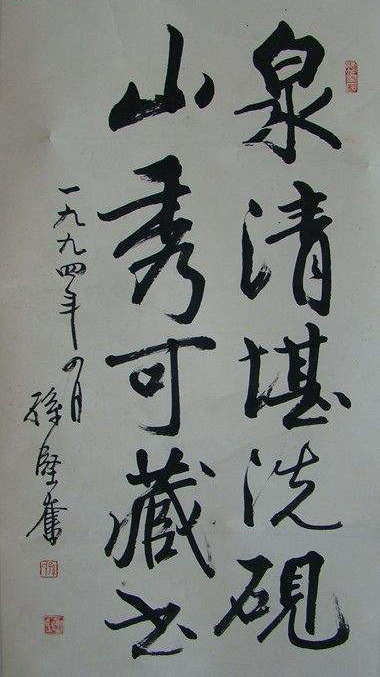 泉清堪洗硯
山秀可藏书
一九九四年四月
孫堅奮